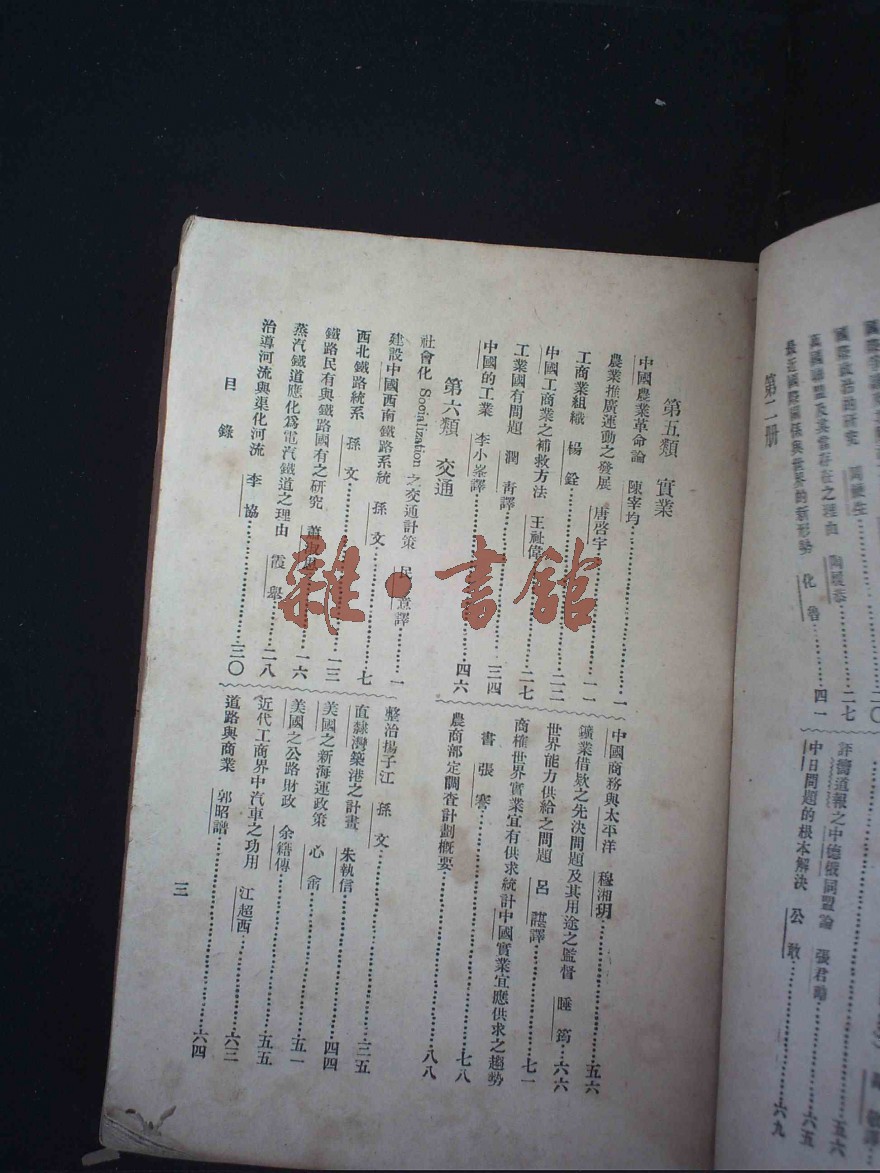 國際政治的研究 周鯁生
英國聯盟及其當存在之理由 陶履恭 二七
最近國際關係與世界的新形勢 化魯 四一
第二册
五六
評衡道報之中德俄同盟論 張君勱 六五
中日問題的根本解決 公敢 六九
第五類 實業
中國農業革命論 陳宰均 一
農業推廣運動之發展 唐啓宇 一一
工商業組織 楊銓 二二
中國工商業之補救方法 王祉偉 二七
工業國有問題 澗青譯 三四
中國的工業 李小峯譯 四六
中國商務與太平洋 穆湘玥 五六
鑛業借款之先決問題及其用途之監督 睡筠 六六
世界能力供給之問題 呂諶譯 七一
商榷世界實業宜有供求統計中國實業宜應供求之趨勢
書 張謇 七八
農商部定調査計劃概要 八八
第六類 交通
社會化 Socialization 之交通計策 民 譯 一
建設中國西南鐵路系統 孫文 七
西北鐵路統系 孫文 一三
鐵路民有與鐵路國有之研究 蕭 一六
蒸汽鐵道應化爲電汽鐵道之理由 霞舉 二八
治導河流與渠化河流 李協 三〇
整治揚子江 孫文 三五
直隸灣築港之計畫 朱執信 四四
美國之新海運政策 心畬 五一
美國之公路財政 余籍傳 五五
近代工商界中汽車之功用 江超西 六三
道路與商業 郭昭譜 六四
目錄
三
雜·書館